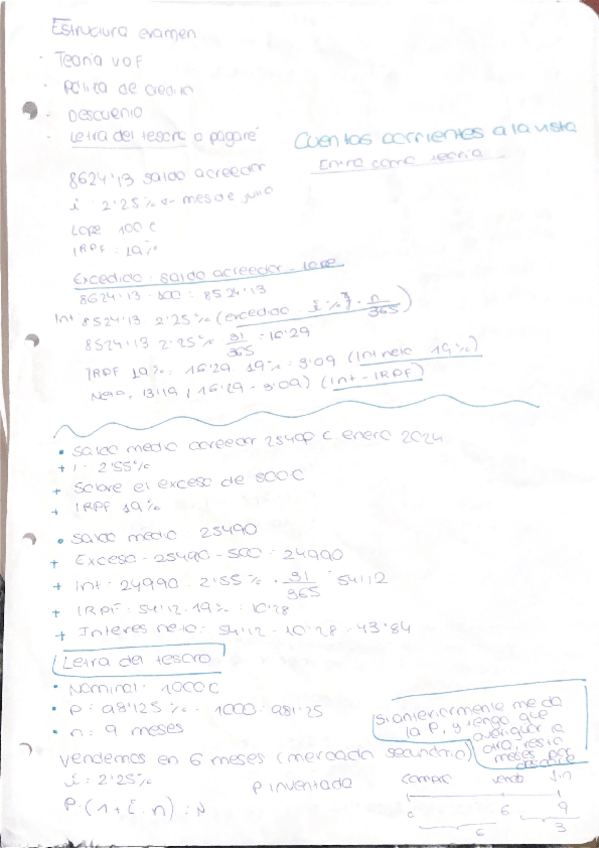 Estructura examen
· Teoria VOF
· Póliza de credito
· Descuento
· Letra del tesoro o pagaré
Cuentas corrientes a la vista
Entra como teoria
8624'13 saldo acreedor
i : 2'25% ← mes de
100 €
IRPF : 19%
Excedido : saldo acreedor -
8624'13 - 500 : 8524'13
Int 8524'13 2'25% (excedido · i% · n/365)
8524'13 2'25% 31/365 = 16'29
IRPF 19% : 16'29 19% : 3'09 (Int neto 19%)
13'19 (16'29 - 3'09) (Int - IRPF)
• Saldo medio acreedor 25490 € enero 2024
+ i : 2'55%
+ Sobre el exceso de 500 €
+ IRPF 19%
• Saldo medio : 25490
+ Exceso - 25490 - 500 : 24990
+ Int : 24990 · 2'55% · 31/365 : 54'12
+ IRPF : 54'12 · 19% : 10'28
+ Interes neto : 54'12 - 10'28 - 43'84
Letra del tesoro
• Nominal : 1000 €
• P : 98'125% · 1000 : 981'25
• n : 9 meses
si anteriormente me da
la P, y tengo que
averiguar la
otra, resto
meses por
vendemos en 6 meses (mercado secundario)
i : 2'25%
P inventada
compro vendo fin
P · (1 + i · n) : N
0 6 9
6 3